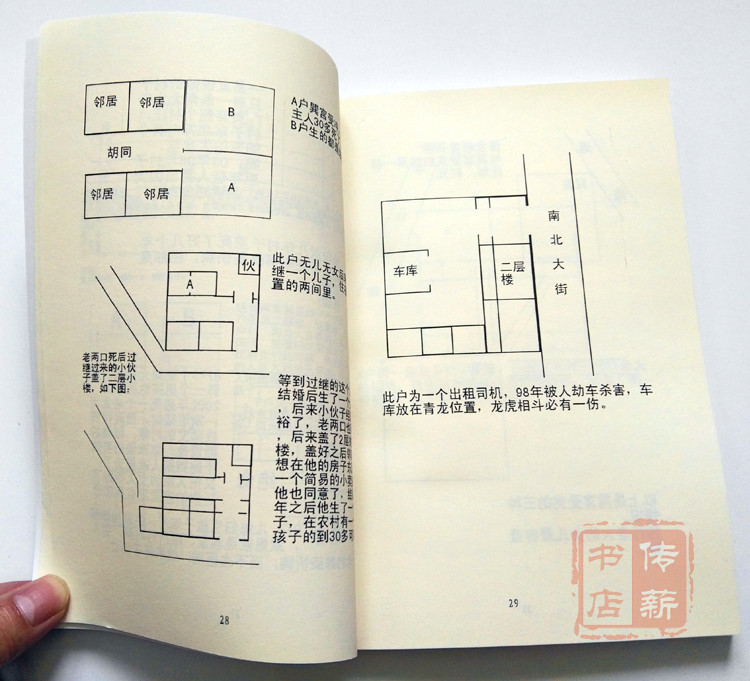 邻居 邻居 B
胡同
邻居 邻居 A
A户巽宫受
主人30多
B户生的都
伙
A
此户无儿无女
继一个儿子，住
置的两间里。
老两口死后过
继过来的小伙
子盖了二层小
楼，如下图：
等到过继的这个
结婚后生了一个
，后来小伙子
裕了，老两口也
，后来盖了2层
楼，盖好之后
想在他的房子
一个简易的小卖
他也同意了，
年之后他生了一
子，在农村有一
孩子的到30多
28
车库
二层
楼
南北大街
此户为一个出租司机，98年被人劫车杀害，车
库放在青龙位置，龙虎相斗必有一伤。
29
传薪
书店